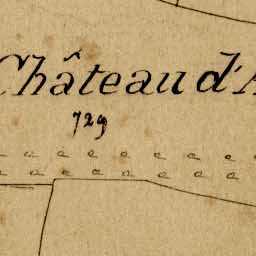 Château d'A
729